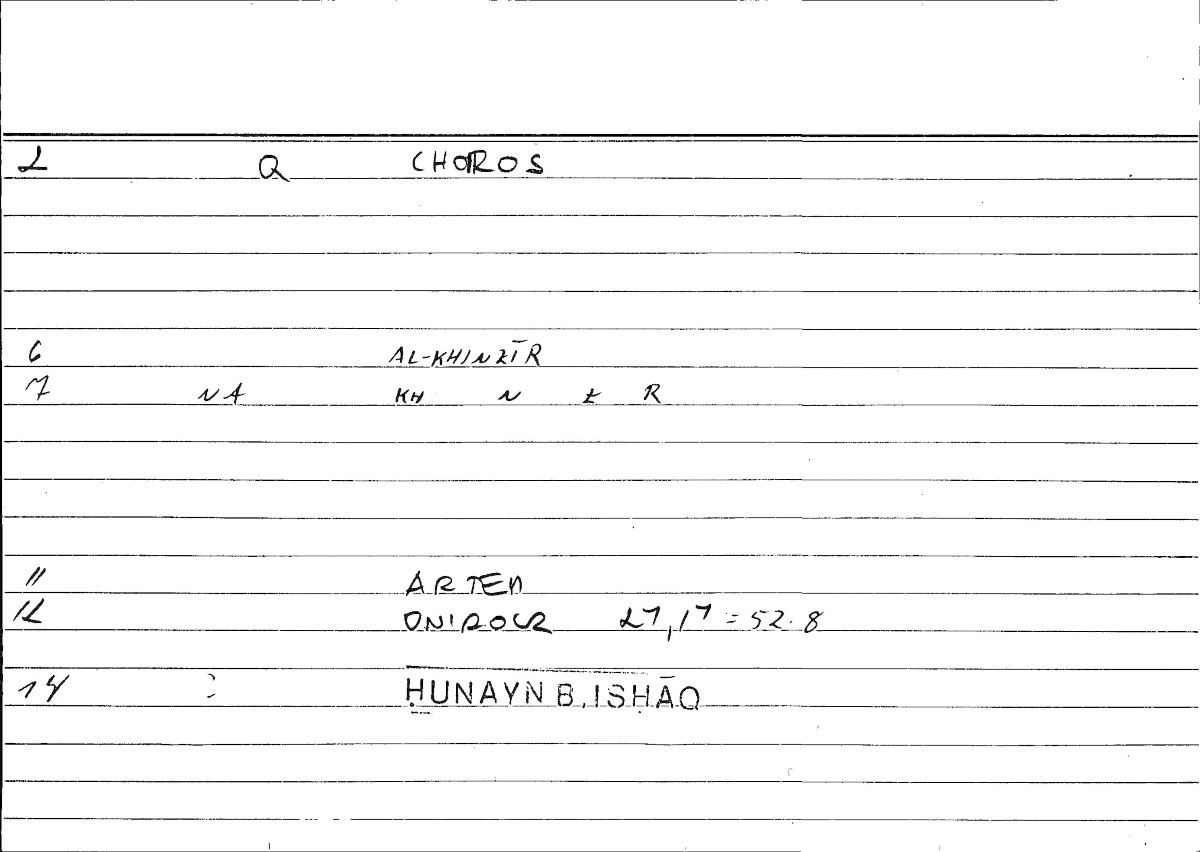 2 Q CHOROS
6 AL-KHINZĪR
7 NA KH N Z R
11 ARTEM
12 ONIROCR 27,17 = 52.8
14 : ḤUNAYN B. ISḤĀQ